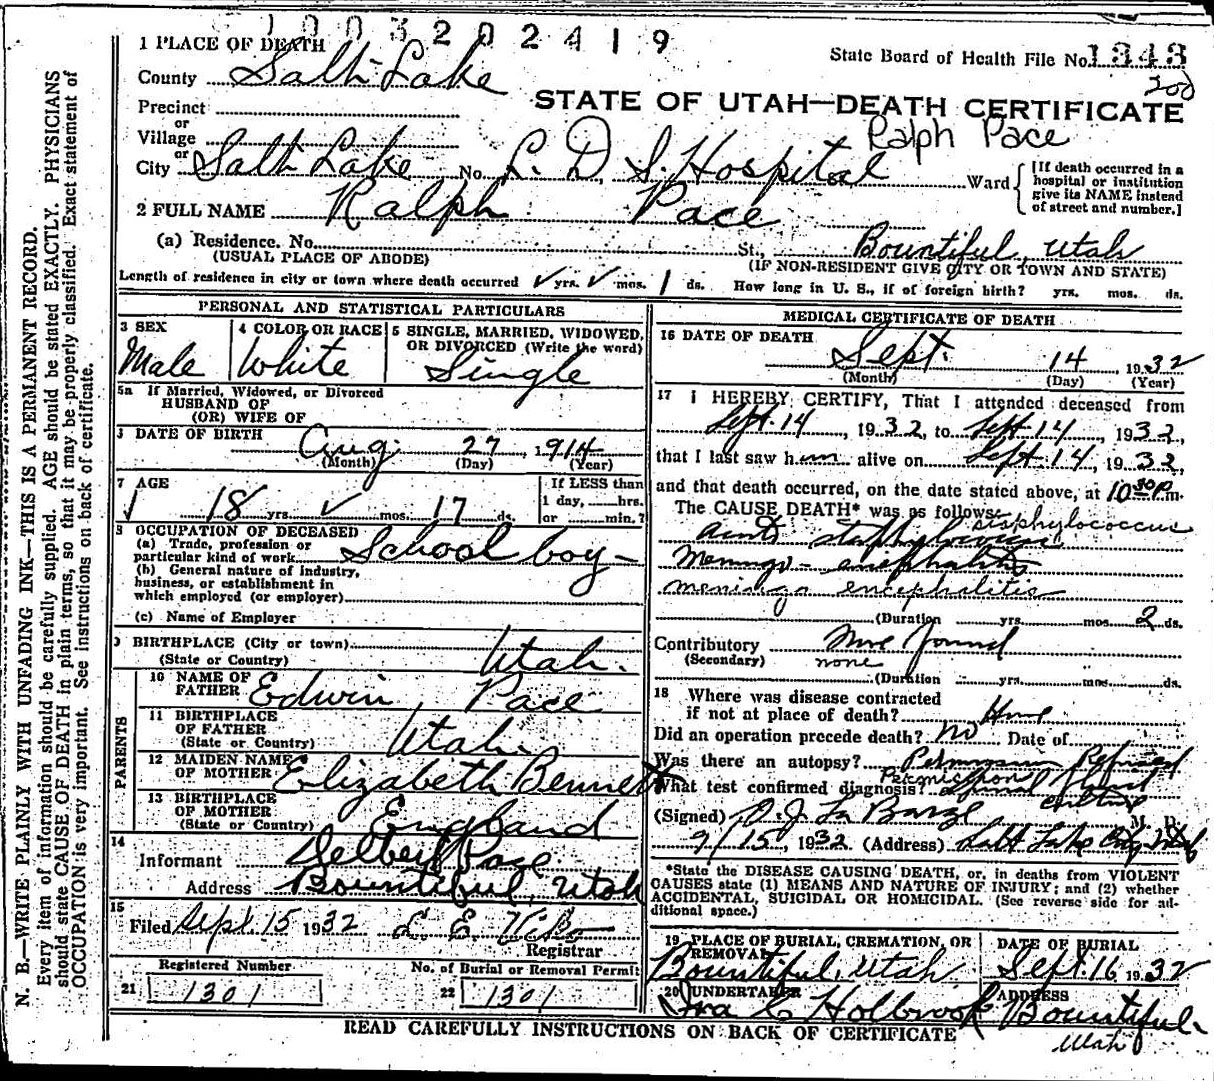 1003202419
1 PLACE OF DEATH
State Board of Health File No. 1343
200
County Salt Lake
STATE OF UTAH—DEATH CERTIFICATE
Precinct
or
Village
Ralph Pace
or
City Salt Lake No. L. D. S. Hospital Ward
[If death occurred in a hospital or institution give its NAME instead of street and number.]
2 FULL NAME Ralph Pace
(a) Residence. No. St., Bountiful, Utah
(USUAL PLACE OF ABODE) (IF NON-RESIDENT GIVE CITY OR TOWN AND STATE)
Length of residence in city or town where death occurred ✓ yrs. ✓ mos. 1 ds. How long in U. S., if of foreign birth? yrs. mos. ds.
PERSONAL AND STATISTICAL PARTICULARS
3 SEX
Male
4 COLOR OR RACE
White
5 SINGLE, MARRIED, WIDOWED,
OR DIVORCED (Write the word)
Single
5a If Married, Widowed, or Divorced
HUSBAND OF
(OR) WIFE OF
DATE OF BIRTH Aug. 27, 1914
(Month) (Day) (Year)
7 AGE
18 yrs. ✓ mos. 17 ds.
If LESS than
1 day, hrs.
or min.?
8 OCCUPATION OF DECEASED
(a) Trade, profession or
particular kind of work School boy
(b) General nature of industry,
business, or establishment in
which employed (or employer)
(c) Name of Employer
9 BIRTHPLACE (City or town)
(State or Country) Utah.
PARENTS
10 NAME OF
FATHER Edwin Pace
11 BIRTHPLACE
OF FATHER
(State or Country) Utah
12 MAIDEN NAME
OF MOTHER Elizabeth Bennett
13 BIRTHPLACE
OF MOTHER
(State or Country) England
14
Informant Delbert Pace
Address Bountiful, Utah
15
Filed Sept. 15 1932
Registrar
Registered Number No. of Burial or Removal Permit
21 1301 22 1301
MEDICAL CERTIFICATE OF DEATH
16 DATE OF DEATH
Sept. 14, 1932
(Month) (Day) (Year)
17 I HEREBY CERTIFY, That I attended deceased from
Sept. 14, 1932, to Sept 14, 1932,
that I last saw him alive on Sept 14, 1932,
and that death occurred, on the date stated above, at 10 30 P.m.
The CAUSE DEATH* was as follows:
staphylococcus
Meningo - encephalitis
meningo encephalitis
(Duration yrs. mos. 2 ds.
Contributory None found
(Secondary) none
(Duration yrs. mos. ds.
18 Where was disease contracted
if not at place of death? Home
Did an operation precede death? No Date of
Was there an autopsy? Permission Refused
Permission
What test confirmed diagnosis? Spinal fluid
culture
(Signed) O. J. La Barge M. D.
9/15, 1932. (Address) Salt Lake City Utah
*State the DISEASE CAUSING DEATH, or, in deaths from VIOLENT
CAUSES state (1) MEANS AND NATURE OF INJURY; and (2) whether
ACCIDENTAL, SUICIDAL OR HOMICIDAL. (See reverse side for ad-
ditional space.)
19 PLACE OF BURIAL, CREMATION, OR
REMOVAL
Bountiful, Utah
DATE OF BURIAL
Sept. 16 1932
20 UNDERTAKER
Ira C Holbrook
ADDRESS
Bountiful
Utah
READ CAREFULLY INSTRUCTIONS ON BACK OF CERTIFICATE
N. B.—WRITE PLAINLY WITH UNFADING INK—THIS IS A PERMANENT RECORD.
Every item of information should be carefully supplied. AGE should be stated EXACTLY. PHYSICIANS
should state CAUSE OF DEATH in plain terms, so that it may be properly classified. Exact statement of
OCCUPATION is very important. See instructions on back of certificate.